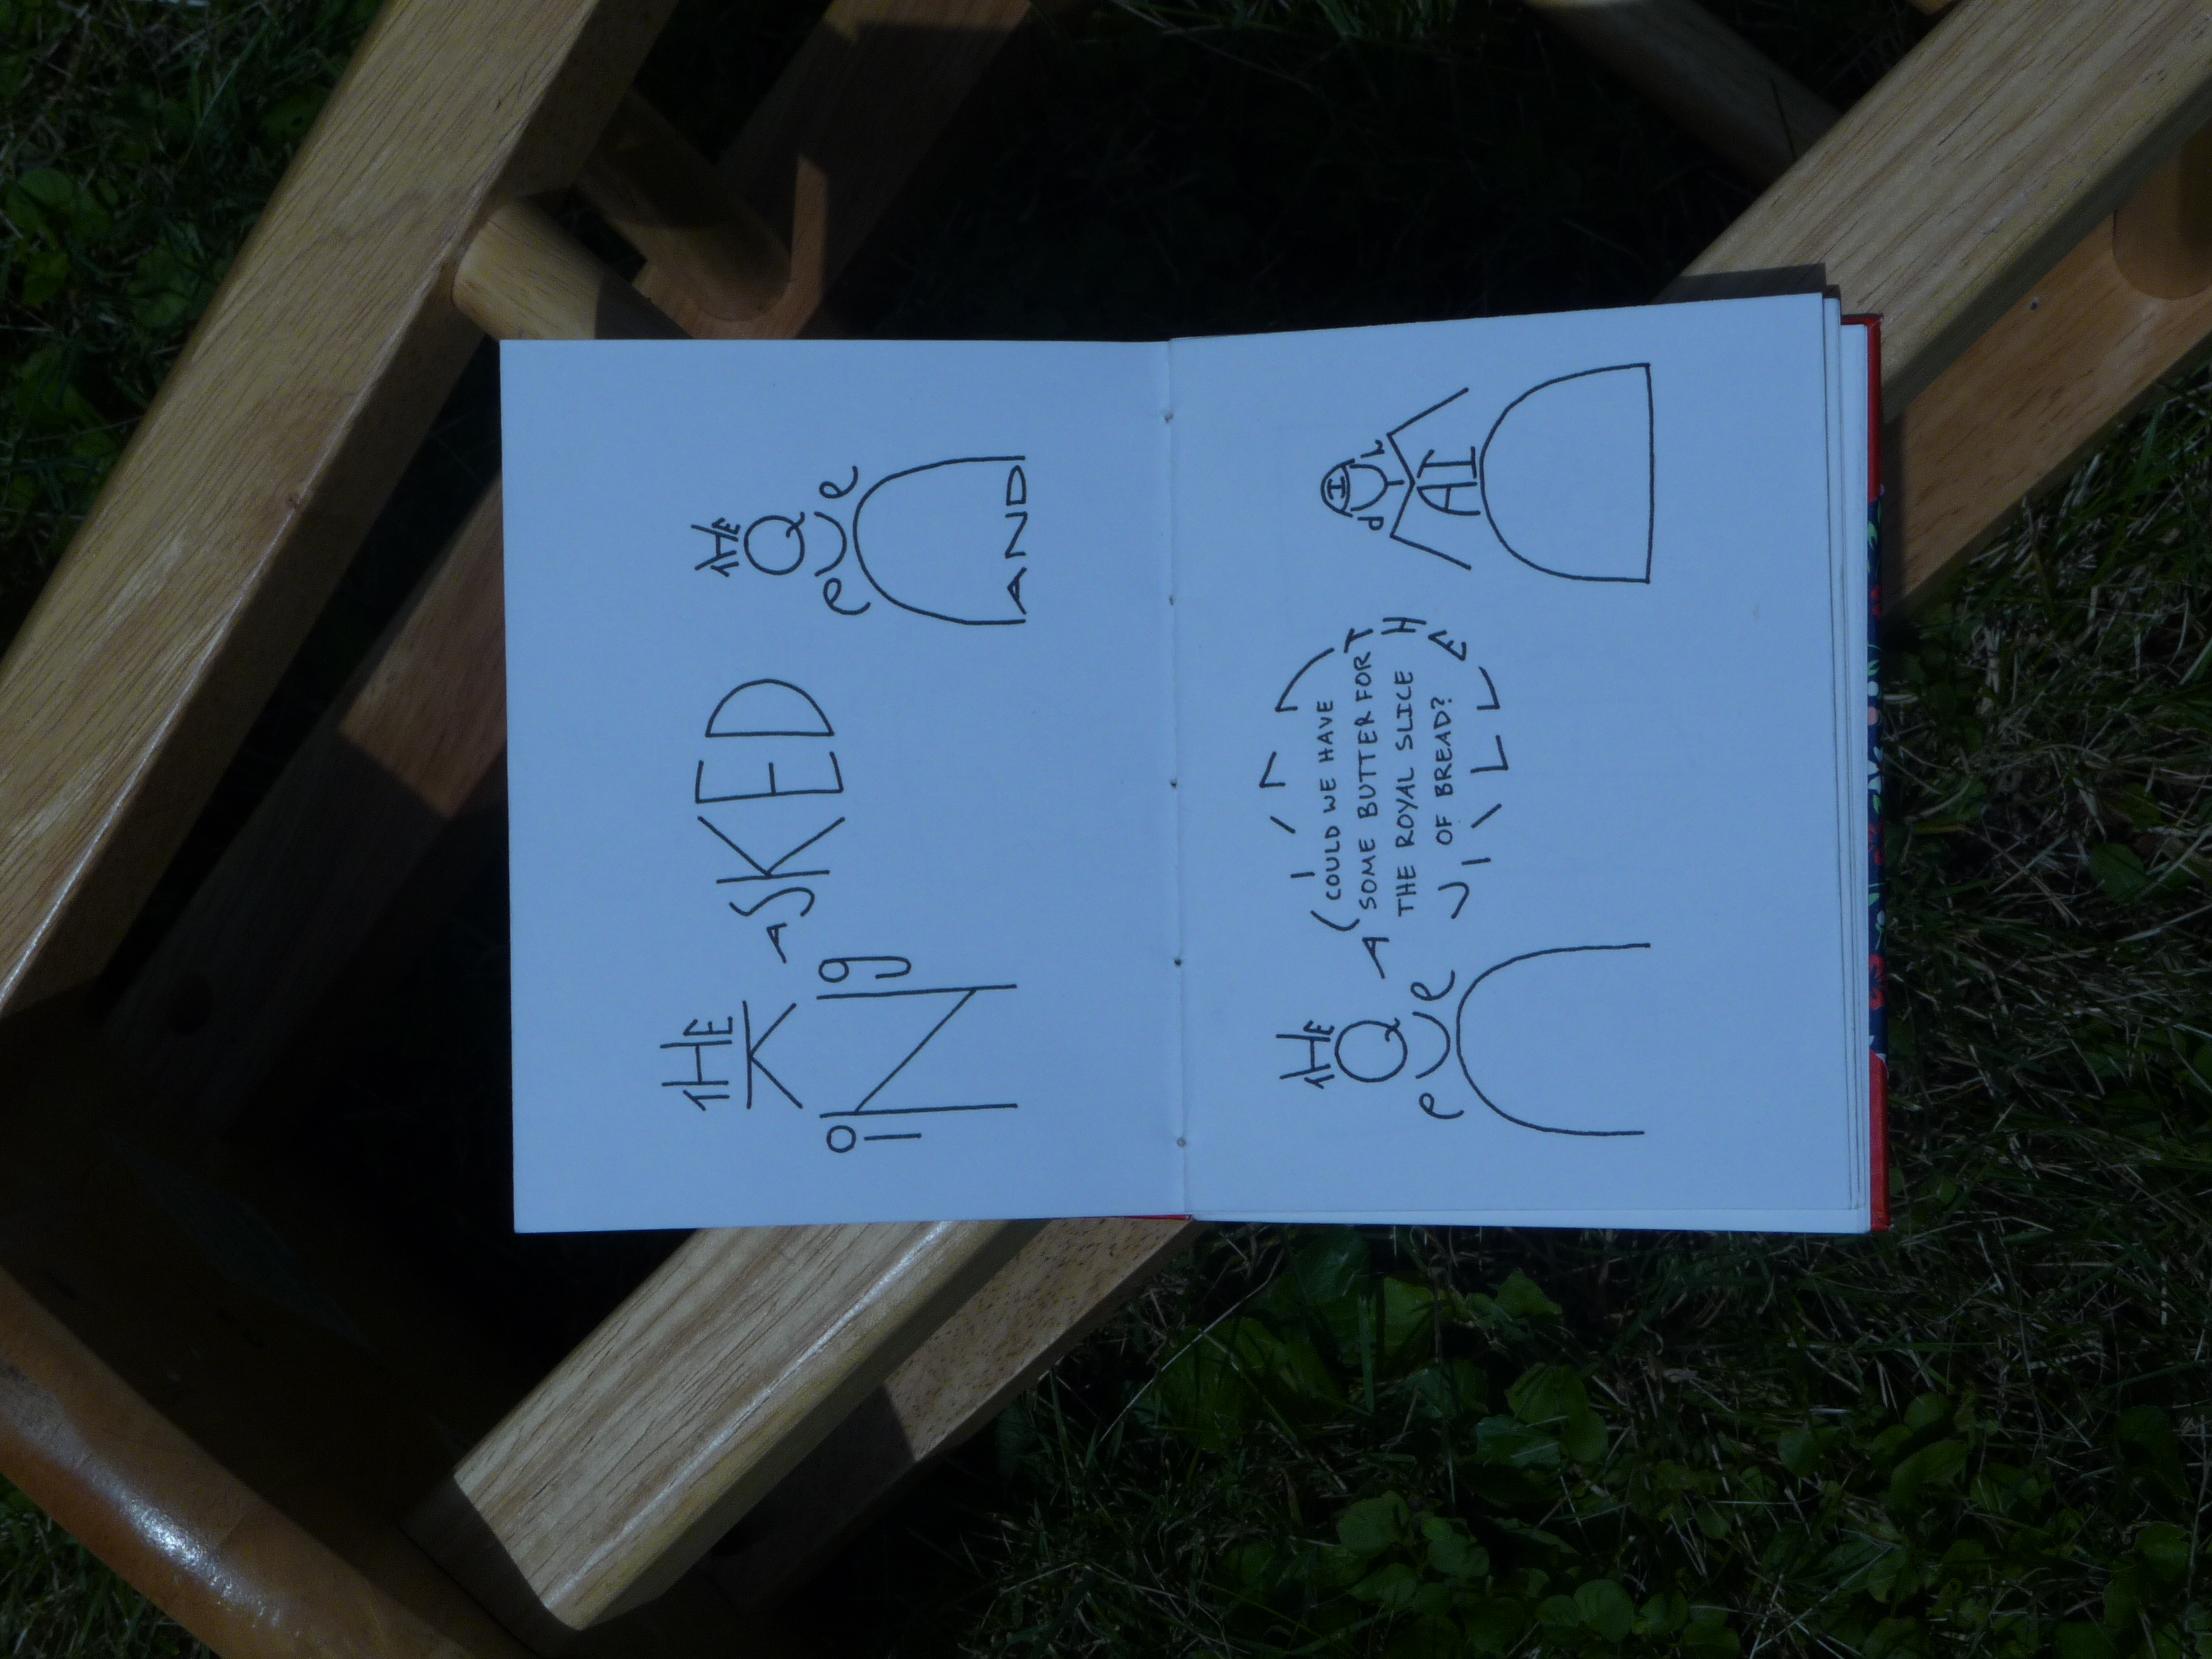 THE KiNg ASKED THE QUeen AND
THE QUeen ASKED THE dAIrYMAID
COULD WE HAVE
SOME BUTTER FOR
THE ROYAL SLICE
OF BREAD?